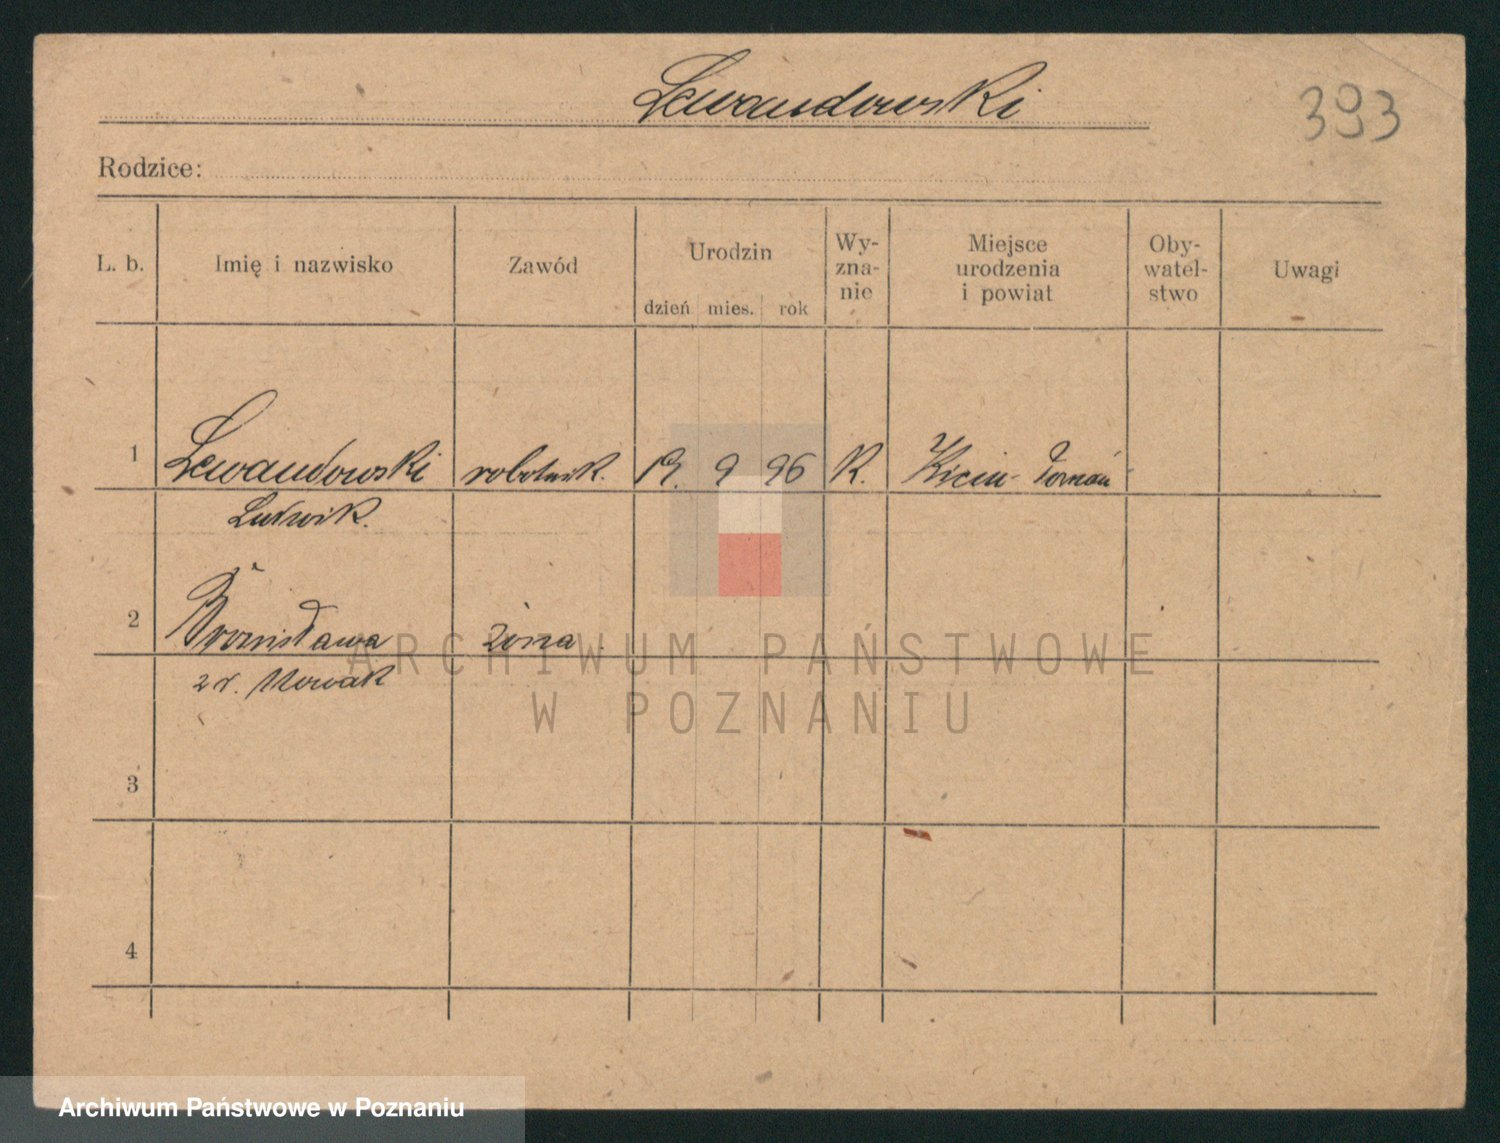 Lewandowski
393
Rodzice:
L. b. Imię i nazwisko Zawód Urodzin Wy-zna-nie Miejsce urodzenia i powiat Oby-watel-stwo Uwagi
dzień mies. rok
1 Lewandowski robotnik. 19. 9 96 R. Kicin- Poznań
Ludwik.
2 Bronisława żona.
z d. Nowak
3
4
ARCHIWUM PAŃSTWOWE
W POZNANIU
Archiwum Państwowe w Poznaniu